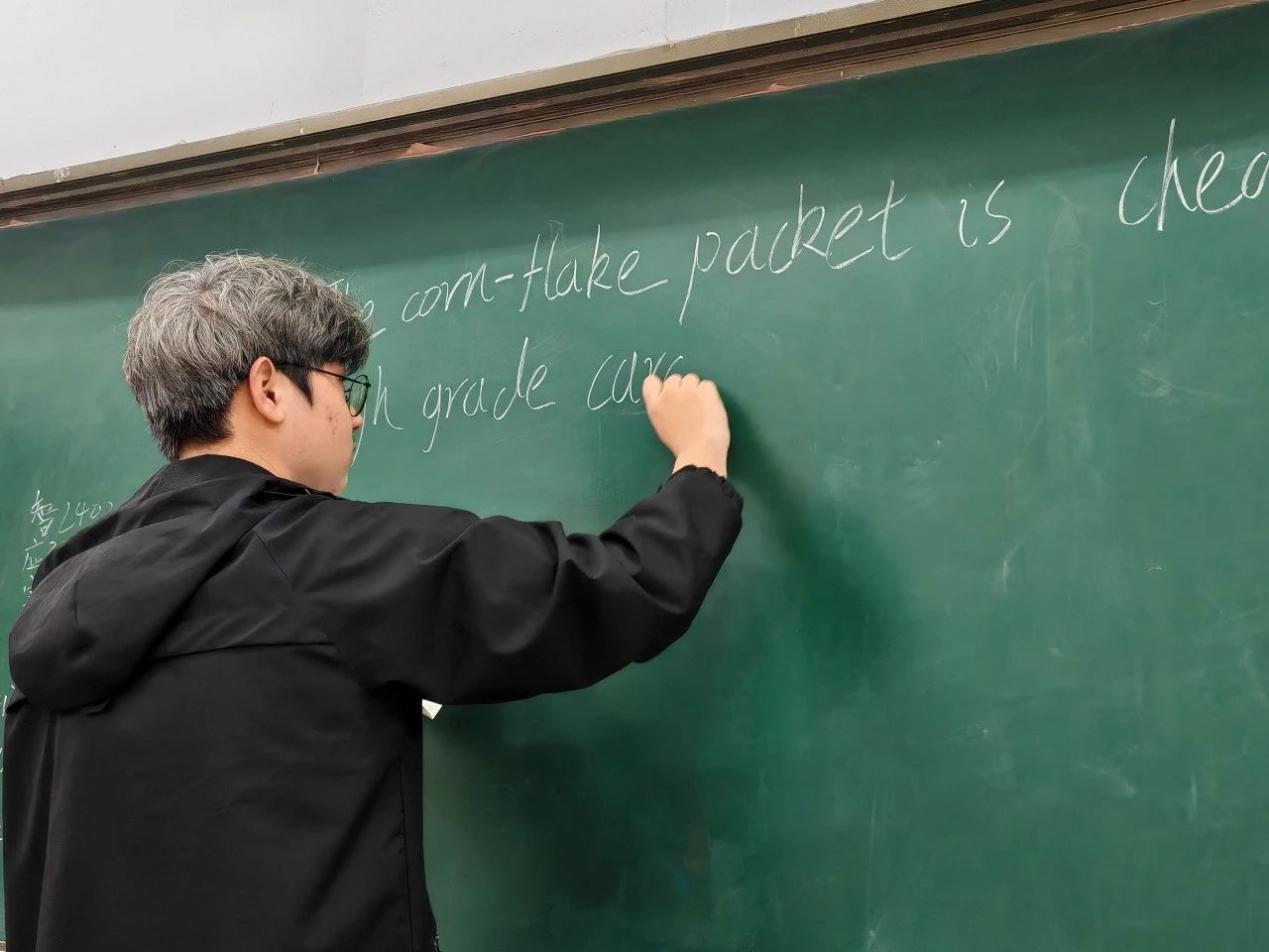 The corn-flake packet is chea
gh grade car
智240
应